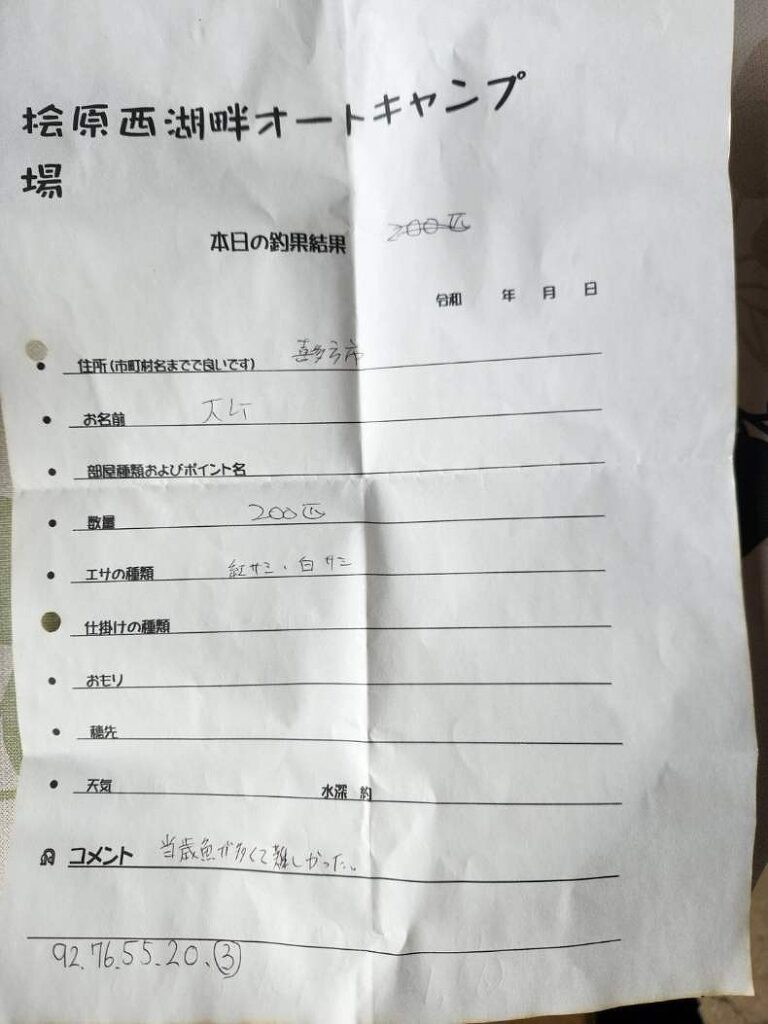 桧原西湖畔オートキャンプ
場
本日の釣果結果 200匹
令和 年 月 日
住所(市町村名までで良いです) 喜多方市
お名前
部屋種類およびポイント名
数量 200匹
エサの種類 紅サシ、白サシ
仕掛けの種類
おもり
穂先
天気 水深 約
コメント 当歳魚が多くて難しかった。
92.76.55.20.③